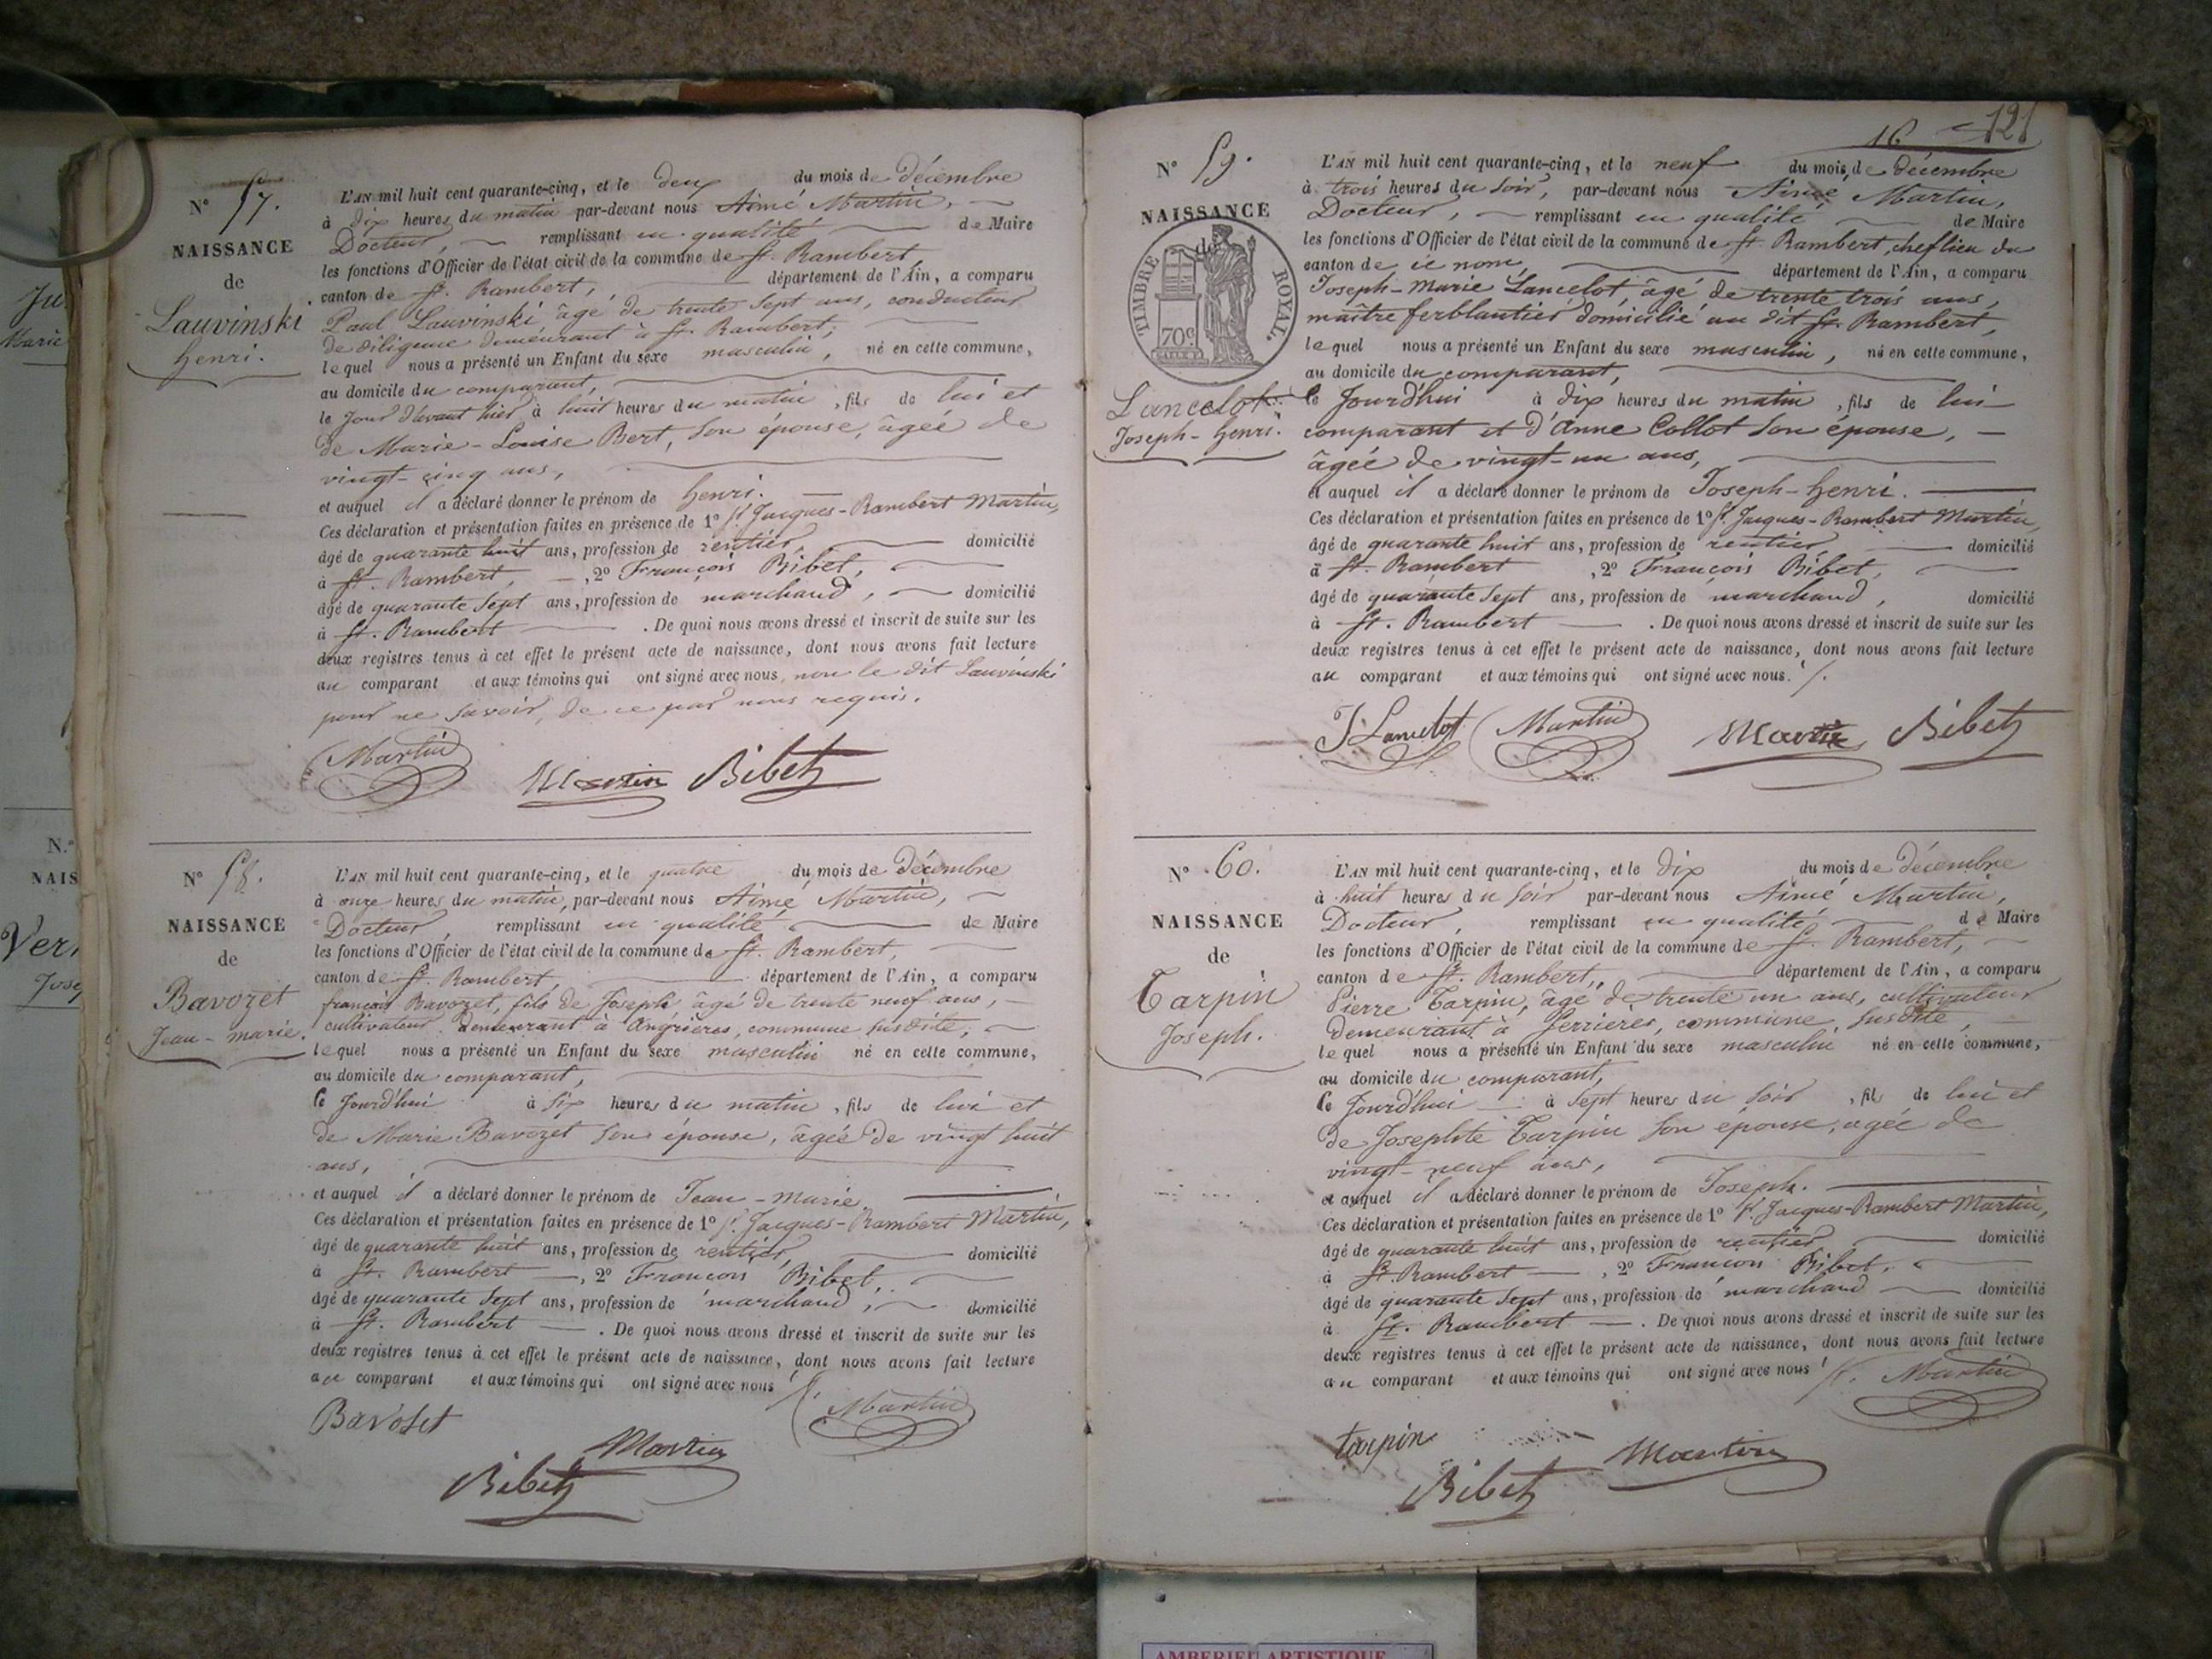 N° 57.
NAISSANCE
de
Lauvinski
henri.
L'AN mil huit cent quarante-cinq, et le deux du mois de décembre
à dix heures du matin par-devant nous Aimé Martin,
Docteur, remplissant en qualité de Maire
les fonctions d'Officier de l'état civil de la commune de St. Rambert,
canton de St. Rambert, département de l'Ain, a comparu
Paul Lauvinski âgé de trente sept ans, conducteur
de diligence demeurant à St. Rambert,
lequel nous a présenté un Enfant du sexe masculin, né en cette commune,
au domicile du comparant,
le jour d'avant hier à huit heures du matin, fils de lui et
de Marie-Louise Bert, son épouse, âgée de
vingt-cinq ans,
et auquel il a déclaré donner le prénom de henri.
Ces déclaration et présentation faites en présence de 1° St Jacques-Rambert Martin,
âgé de quarante huit ans, profession de rentier, domicilié
à St. Rambert, 2° François Bibet,
âgé de quarante sept ans, profession de marchand, domicilié
à St. Rambert. De quoi nous avons dressé et inscrit de suite sur les
deux registres tenus à cet effet le présent acte de naissance, dont nous avons fait lecture
au comparant et aux témoins qui ont signé avec nous, non le dit Lauvinski
pour ne savoir, de ce par nous requis.
Martin Martin Bibet
N° 58.
NAISSANCE
de
Bavozet
Jean-marie.
L'AN mil huit cent quarante-cinq, et le quatre du mois de décembre
à onze heures du matin, par-devant nous Aimé Martin,
Docteur, remplissant en qualité de Maire
les fonctions d'Officier de l'état civil de la commune de St. Rambert,
canton de St. Rambert, département de l'Ain, a comparu
françois Bavozet, fils de Joseph âgé de trente neuf ans,
cultivateur demeurant à Angrières, commune susdite,
lequel nous a présenté un Enfant du sexe masculin né en cette commune,
au domicile du comparant,
le jourd'hui à six heures du matin, fils de lui et
de Marie Bavozet son épouse, âgée de vingt huit
ans,
et auquel il a déclaré donner le prénom de Jean-marie.
Ces déclaration et présentation faites en présence de 1° St Jacques-Rambert Martin,
âgé de quarante huit ans, profession de rentier, domicilié
à St. Rambert, 2° François Bibet,
âgé de quarante sept ans, profession de marchand, domicilié
à St. Rambert. De quoi nous avons dressé et inscrit de suite sur les
deux registres tenus à cet effet le présent acte de naissance, dont nous avons fait lecture
au comparant et aux témoins qui ont signé avec nous
Martin
Bavoset
Martin
Bibet
16 121
N° 59.
NAISSANCE
de
TIMBRE ROYAL.
70c.
Lancelot
Joseph-henri.
L'AN mil huit cent quarante-cinq, et le neuf du mois de décembre
à trois heures du soir, par-devant nous Aimé Martin,
Docteur, remplissant en qualité de Maire
les fonctions d'Officier de l'état civil de la commune de St. Rambert, chef lieu du
canton de ce nom, département de l'Ain, a comparu
Joseph-Marie Lancelot, âgé de trente trois ans,
maître ferblantier domicilié au dit St. Rambert,
lequel nous a présenté un Enfant du sexe masculin, né en cette commune,
au domicile du comparant,
le jourd'hui à dix heures du matin, fils de lui
comparant et d'Anne Collot son épouse,
âgée de vingt-un ans,
et auquel il a déclaré donner le prénom de Joseph-henri.
Ces déclaration et présentation faites en présence de 1° St Jacques-Rambert Martin,
âgé de quarante huit ans, profession de rentier domicilié
à St. Rambert, 2° François Bibet,
âgé de quarante sept ans, profession de marchand, domicilié
à St. Rambert. De quoi nous avons dressé et inscrit de suite sur les
deux registres tenus à cet effet le présent acte de naissance, dont nous avons fait lecture
au comparant et aux témoins qui ont signé avec nous.
J Lancelot Martin Martin Bibet
N° 60.
NAISSANCE
de
Tarpin
Joseph.
L'AN mil huit cent quarante-cinq, et le dix du mois de décembre
à huit heures du soir par-devant nous Aimé Martin,
Docteur, remplissant en qualité de Maire
les fonctions d'Officier de l'état civil de la commune de St. Rambert,
canton de St. Rambert, département de l'Ain, a comparu
Pierre Tarpin, âgé de trente un ans, cultivateur
demeurant à Serrières, commune susdite,
lequel nous a présenté un Enfant du sexe masculin né en cette commune,
au domicile du comparant,
le jourd'hui à sept heures du soir, fils de lui et
de Josephte Tarpin son épouse, âgée de
vingt-neuf ans,
et auquel il a déclaré donner le prénom de Joseph.
Ces déclaration et présentation faites en présence de 1° St Jacques-Rambert Martin,
âgé de quarante huit ans, profession de rentier domicilié
à St. Rambert, 2° François Bibet,
âgé de quarante sept ans, profession de marchand domicilié
à St. Rambert. De quoi nous avons dressé et inscrit de suite sur les
deux registres tenus à cet effet le présent acte de naissance, dont nous avons fait lecture
au comparant et aux témoins qui ont signé avec nous
Martin
tarpin
Martin
Bibet
AMBERIEU ARTISTIQUE